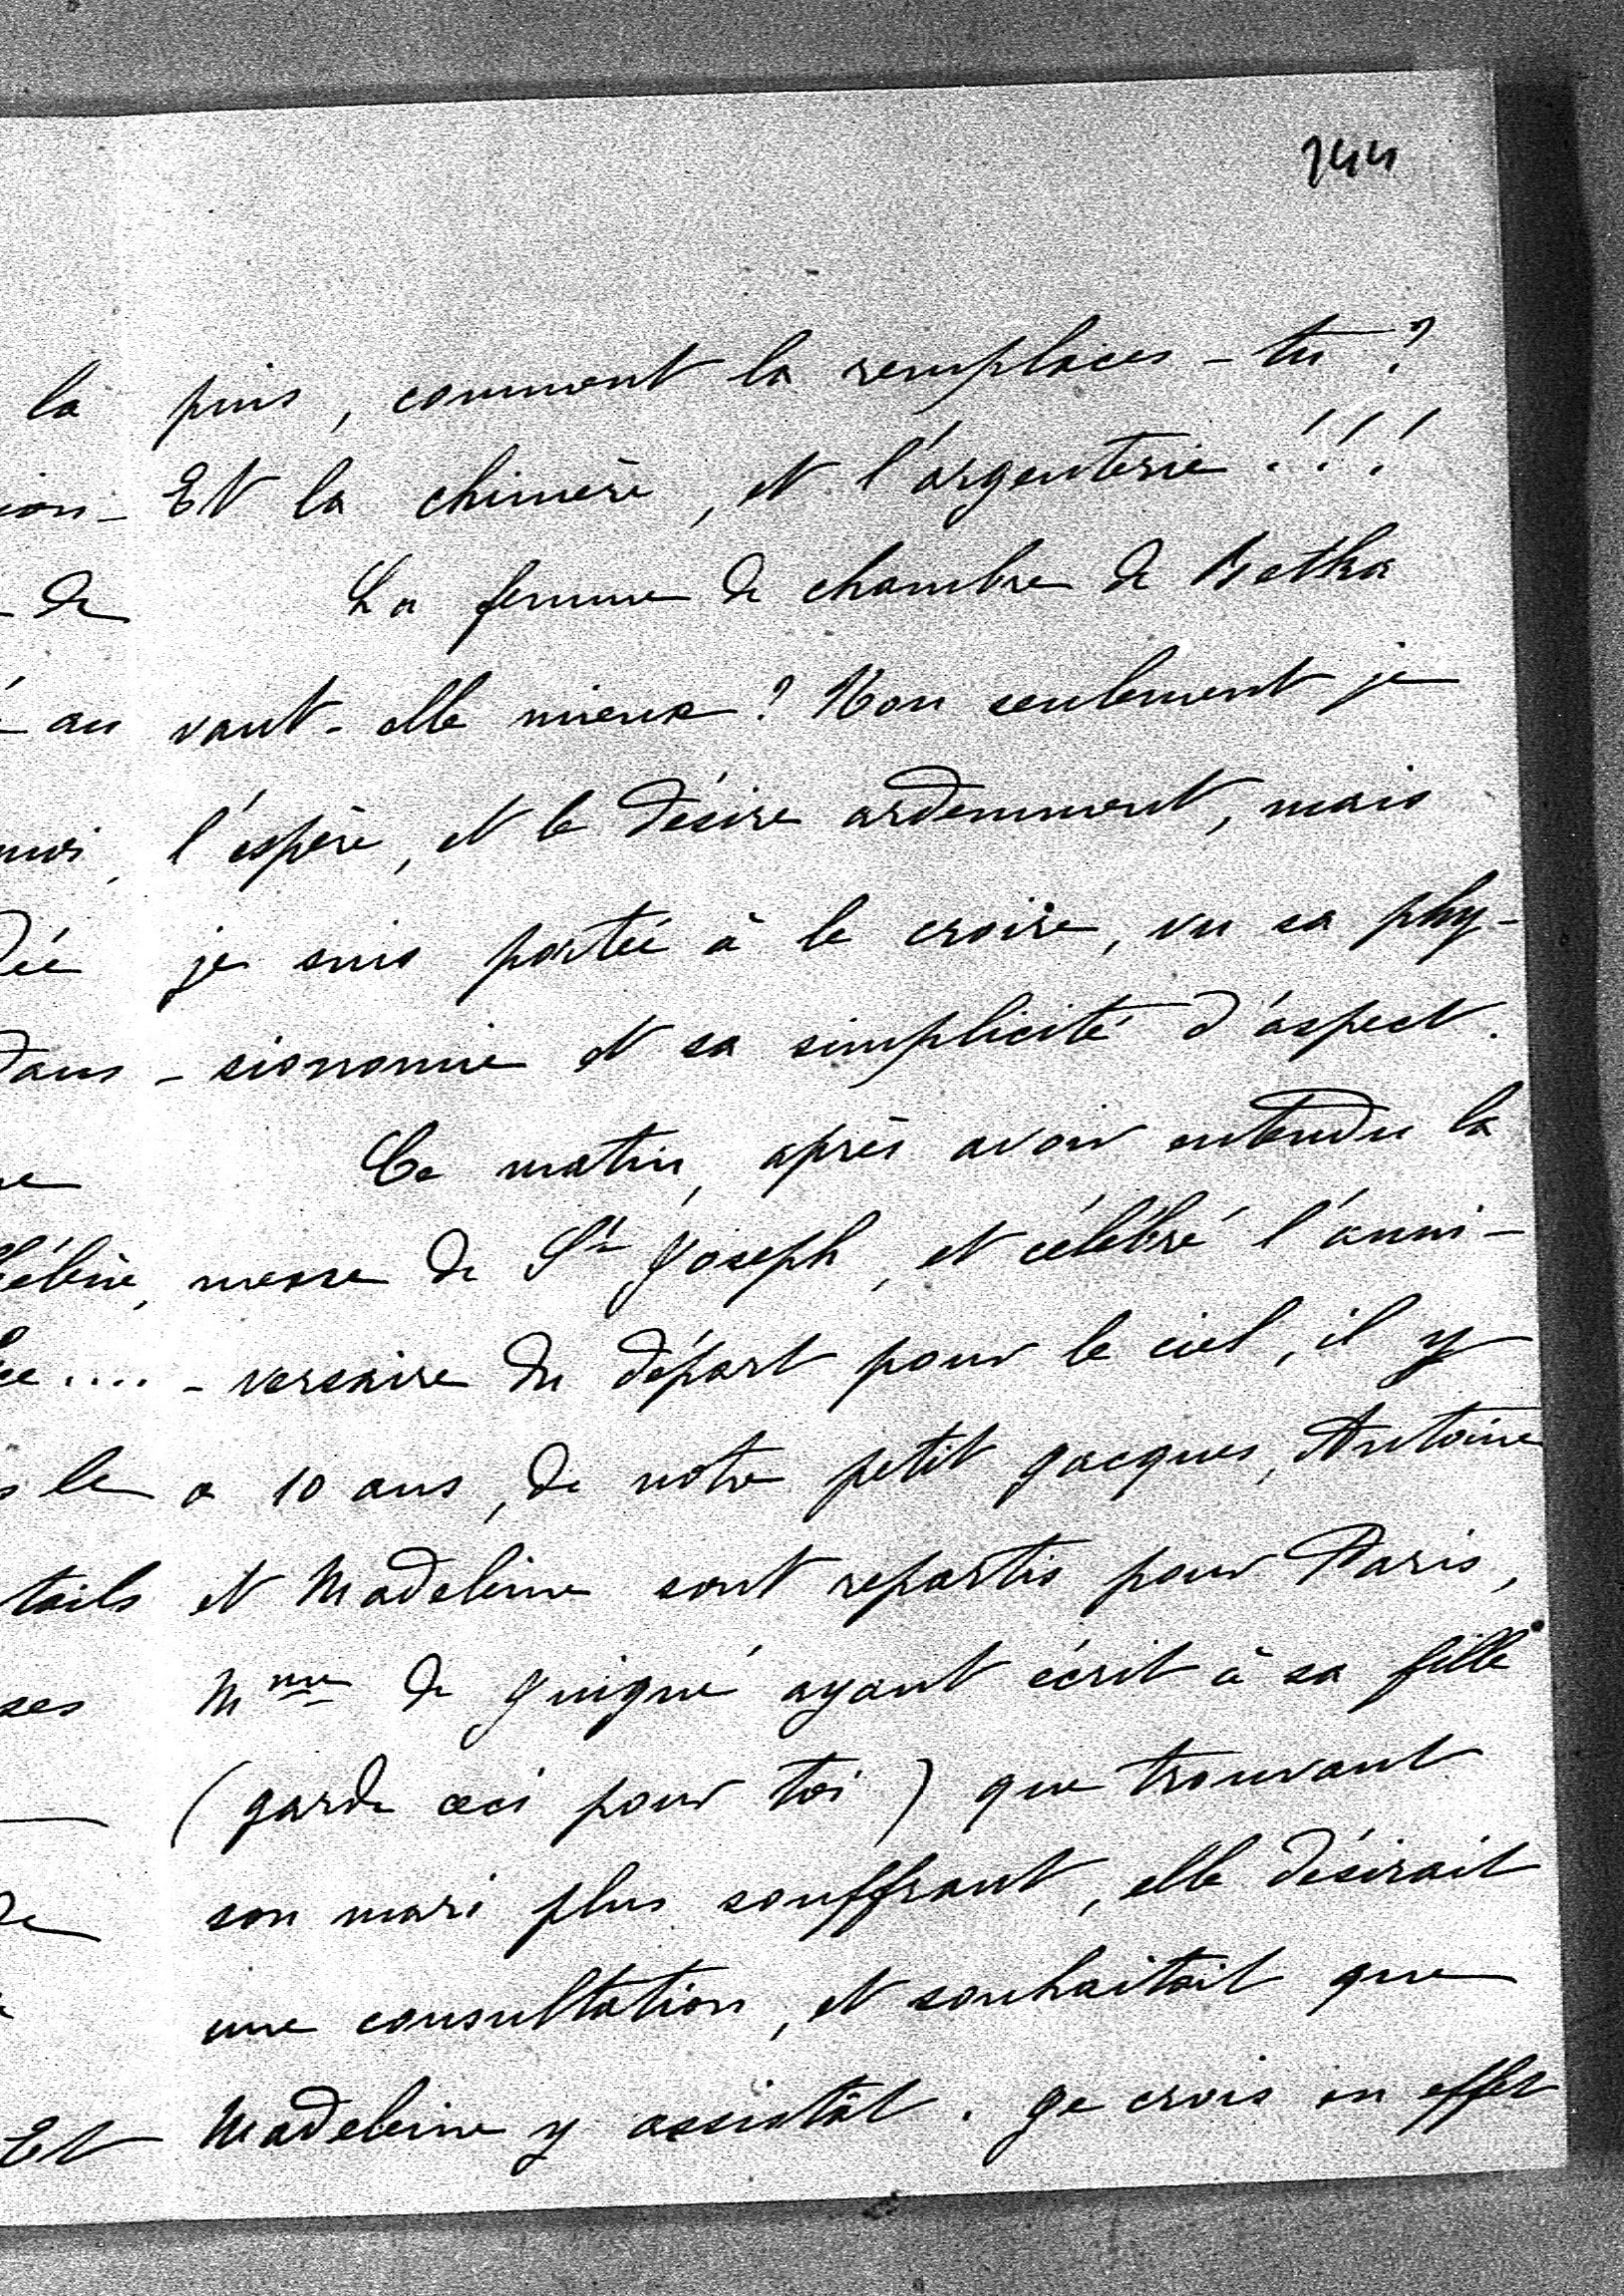 144
puis, comment la remplaces-tu ?
Et la chimère, et l'argenterie !!!
La femme de chambre de Betka
vaut-elle mieux ? Non seulement je
l'espère, et le désire ardemment, mais
je suis portée à le croire, vu sa phy-
-sionomie et sa simplicité d'aspect.
Ce matin, après avoir entendu la
messe de St Joseph, et célébré l'anni-
-versaire du départ pour le ciel, il y
a 10 ans, de notre petit Jacques, Antoine
et Madeleine sont repartis pour Paris,
Mme de Guigné ayant écrit à sa fille
(garde ceci pour toi) que trouvant
son mari plus souffrant, elle désirait
une consultation, et souhaitait que
Madeleine y assistât. Je crois en effet
la
ion-
de
au
dans
le
tails
ses
Et